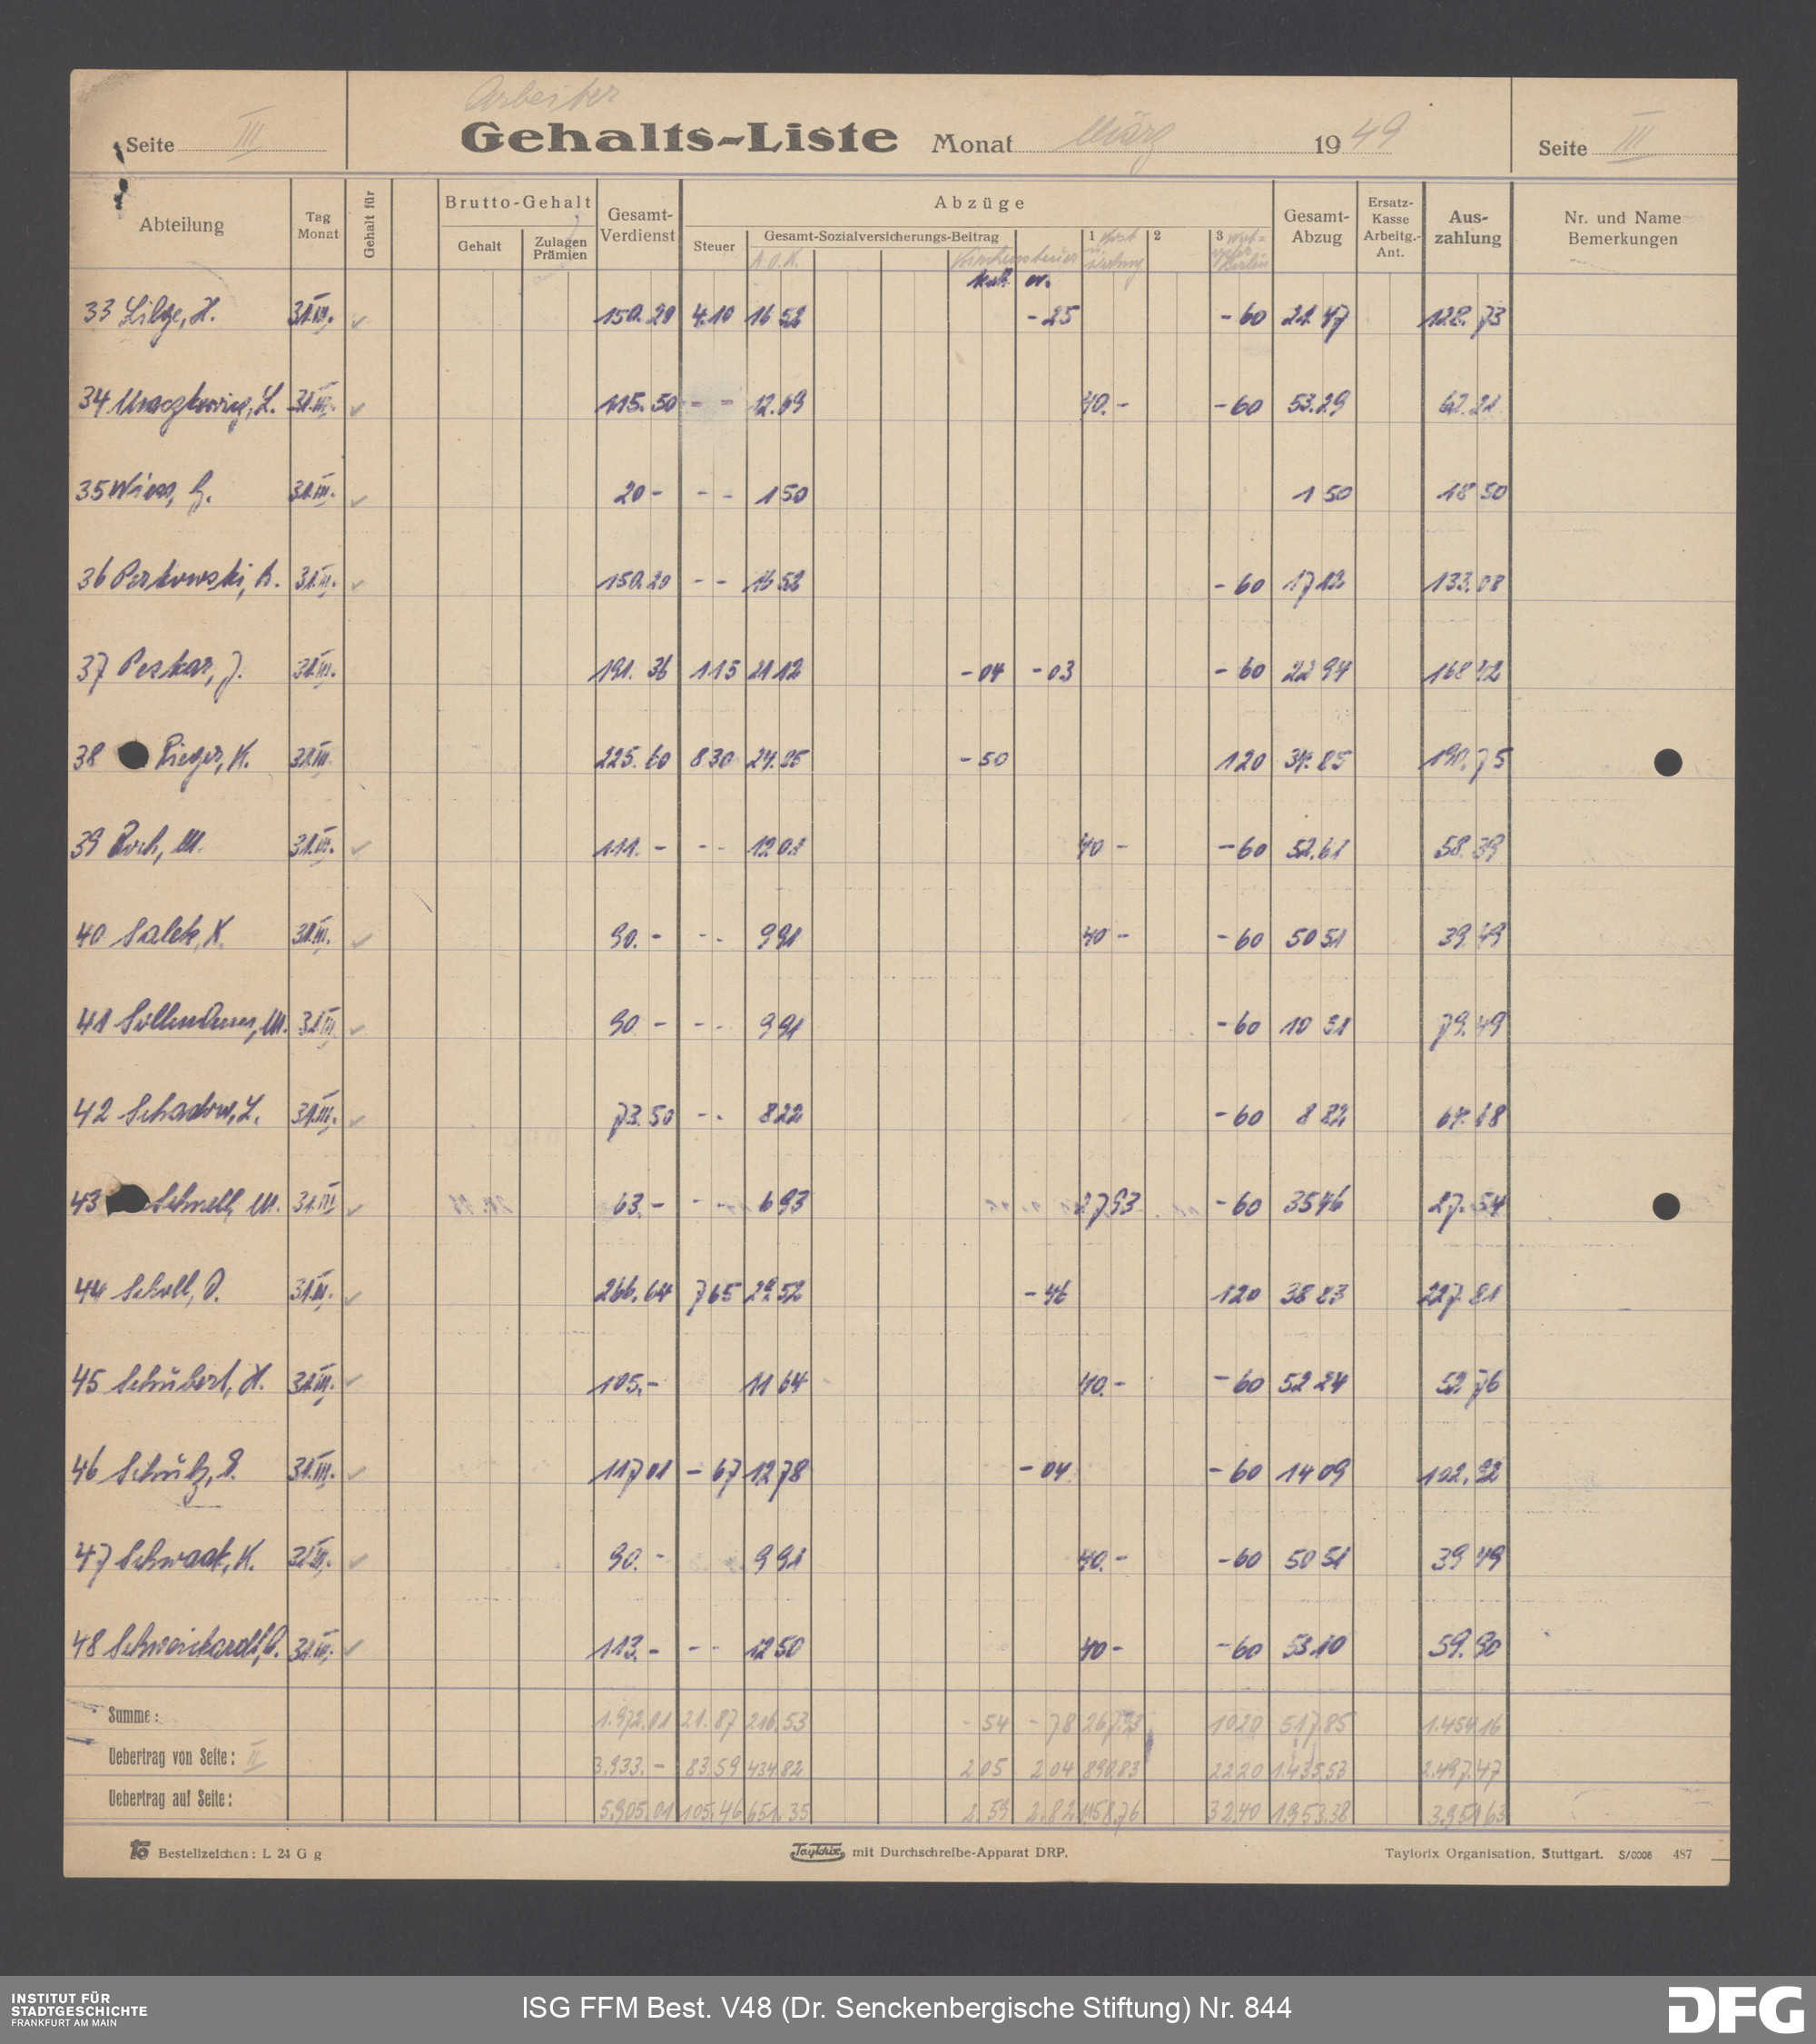 Arbeiter
Seite III Gehalts-Liste Monat März 1949 Seite III
Abteilung Tag Monat Gehalt für Brutto-Gehalt Gehalt Zulagen Prämien Gesamt-Verdienst Abzüge Steuer Gesamt-Sozialversicherungs-Beitrag A.O.K. Kirchensteuer kath. ev. 1 Kost u. Wohng 2 3 Berlin Gesamt-Abzug Ersatz-Kasse Arbeitg.-Ant. Aus-zahlung Nr. und Name Bemerkungen
33 Lilge, H. 31.III. 150.20 4.10 16 52 -25 -60 21.47 128.73
34 L. 31.III. 115.50 - - 12.69 40.- -60 53.29 62.21
35 31.III. 20 - - - 1 50 1 50 18 50
36 Perkowski, A. 31.III. 150.20 - - 16 52 -60 17 12 133.08
37 Peskar, J. 31.III. 191.36 1 15 21 12 -04 -03 -60 22 94 168 42
38 Rieger, K. 31.III. 225.60 8 30 24.85 -50 1 20 34.85 190.75
39 Roch, M. 31.III. 111.- - - 12 01 40 - -60 52.61 58.39
40 Salek, K. 31.III. 90.- - - 9 91 40 - -60 50 51 39.49
41 M. 31.III. 90 - - - 9 91 -60 10 51 79.49
42 Schadow, L. 31.III. 73.50 - - 8 22 -60 8 82 64.68
43 Schnell, M. 31.III. 63.- - - 6 93 27 93 -60 35 46 27.54
44 Scholl, O. 31.III. 266.64 7 65 29.52 -46 1 20 38 83 227.81
45 Schubert, H. 31.III. 105.- 11 64 40.- -60 52 24 52 76
46 Schütz, E. 31.III. 117 01 - 67 12 78 -04 -60 14 09 102.92
47 Schwaak, K. 31.III. 90.- 9 91 40.- -60 50 51 39 49
48 Schweickardt, 31.III. 113.- - - 12 50 40 - -60 53.10 59.90
Summe: 1.972.01 21.87 216.53 -54 -78 267.93 10 20 517.85 1.454 16
Uebertrag von Seite: II 3.933.- 83.59 434.82 2 05 2 04 890.83 22 20 1.435.53 2.497.47
Uebertrag auf Seite: 5.905.01 105.46 651.35 2.59 2.82 1158.76 32.40 1.953.38 3.951 63
Bestellzeichen: L 24 G g Taylorix mit Durchschreibe-Apparat DRP. Taylorix Organisation, Stuttgart. S/0006 487
INSTITUT FÜR
STADTGESCHICHTE
FRANKFURT AM MAIN
ISG FFM Best. V48 (Dr. Senckenbergische Stiftung) Nr. 844
DFG